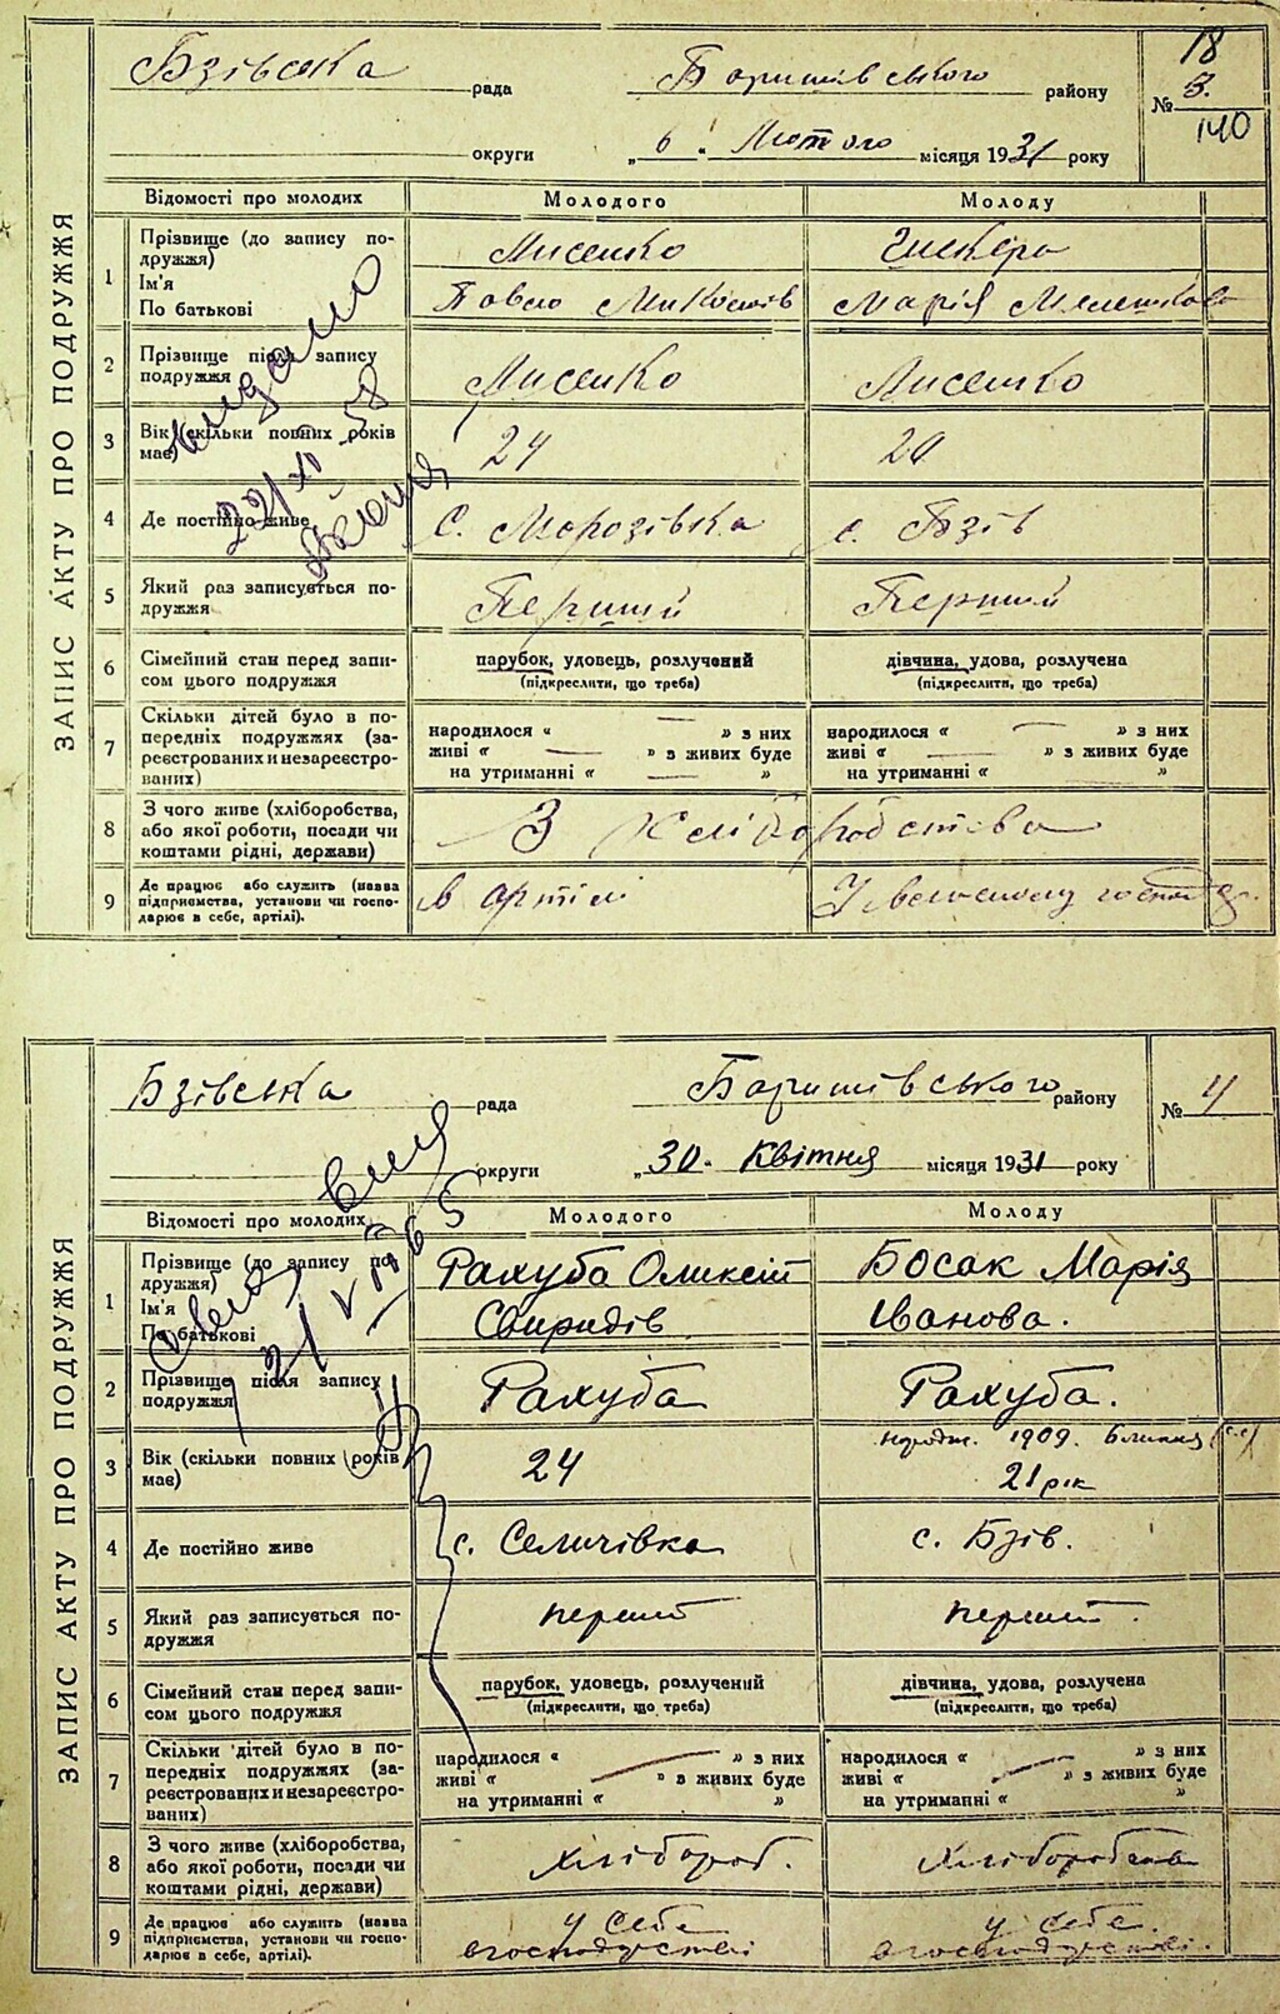 ЗАПИС АКТУ ПРО ПОДРУЖЖЯ
Бзівська рада Баришівського району
18
№ 3.
140
округи „ 6 “ Лютого місяця 1931 року
Відомості про молодих Молодого Молоду
1 Прізвище (до запису по-
дружжя) Лисенко
Ім'я
По батькові Павло Миколаїв Марія
2 Прізвище після запису
подружжя Лисенко Лисенко
видано
22/XII 58
3 Вік (скільки повних років
має) 24 20
4 Де постійно живе С. Морозівка с. Бзів
5 Який раз записується по-
дружжя Перший Перший
6 Сімейний стан перед запи-
сом цього подружжя
парубок, удовець, розлучений дівчина, удова, розлучена
(підкреслити, що треба) (підкреслити, що треба)
7 Скільки дітей було в по-
передніх подружжях (за-
реєстрованих и незареєстро-
ваних)
народилося « — » з них народилося « — » з них
живі « — » з живих буде живі « — » з живих буде
на утриманні « — » на утриманні « »
8 З чого живе (хліборобства,
або якої роботи, посади чи
коштами рідні, держави) З Хліборобства
9 Де працює або служить (назва
підприємства, установи чи госпо-
дарює в себе, артілі). в артілі У власному господ.
ЗАПИС АКТУ ПРО ПОДРУЖЖЯ
Бзівська рада Баришівського району № 4
округи „30“ Квітня місяця 1931 року
Відомості про молодих Молодого Молоду
1 Прізвище (до запису по-
дружжя) Рахуба Олексій Босак Марія
Ім'я
По батькові Свиридів Іванова.
2 Прізвище після запису
подружжя Рахуба Рахуба.
народж. 1909.
3 Вік (скільки повних років
має) 24 21 рік
4 Де постійно живе с. Селичівка с. Бзів.
5 Який раз записується по-
дружжя перший перший.
6 Сімейний стан перед запи-
сом цього подружжя
парубок, удовець, розлучений дівчина, удова, розлучена
(підкреслити, що треба) (підкреслити, що треба)
7 Скільки дітей було в по-
передніх подружжях (за-
реєстрованих и незареєстро-
ваних)
народилося « — » з них народилося « — » з них
живі « » в живих буде живі « » з живих буде
на утриманні « » на утриманні « »
8 З чого живе (хліборобства,
або якої роботи, посади чи
коштами рідні, держави) хлібороб. Хліборобство
9 Де працює або служить (назва
підприємства, установи чи госпо-
дарює в себе, артілі). у себе у себе.
в господустві в господустві.